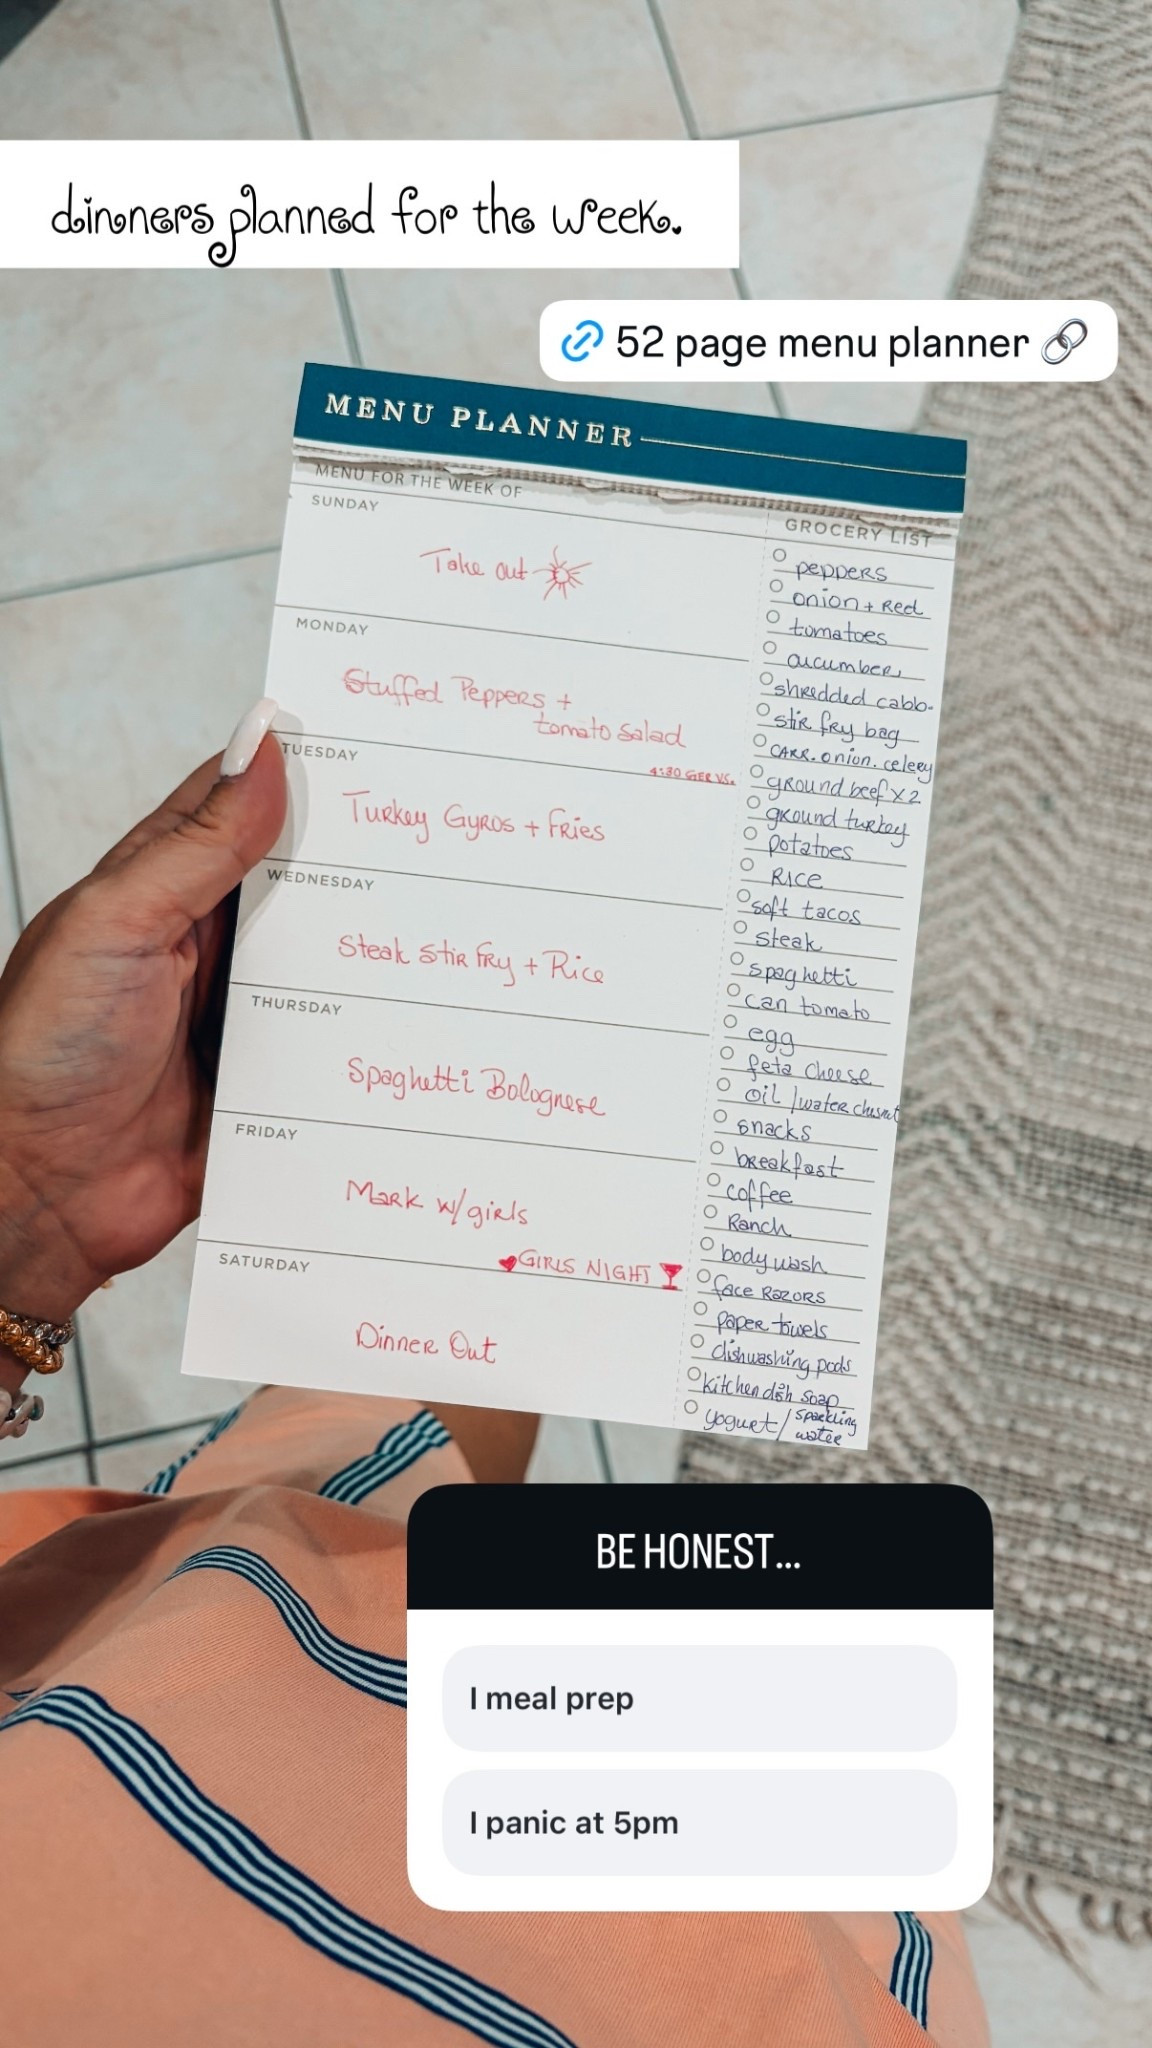 dinners planned for the week.
52 page menu planner
MENU PLANNER
MENU FOR THE WEEK OF
SUNDAY
Take out
MONDAY
Stuffed Peppers +
tomato salad
TUESDAY
4:30 GER VS.
Turkey Gyros + Fries
WEDNESDAY
Steak Stir Fry + Rice
THURSDAY
Spaghetti Bolognese
FRIDAY
Mark w/girls
GIRLS NIGHT
SATURDAY
Dinner Out
GROCERY LIST
peppers
onion + Red
tomatoes
cucumber
shredded cabb-
stir fry bag
CARR. onion. celery
ground beef x 2
ground turkey
potatoes
Rice
soft tacos
steak
spaghetti
can tomato
egg
feta cheese
oil / water chesnut
snacks
breakfast
coffee
Ranch
body wash
face RAZORS
paper towels
dishwashing pods
kitchen dish soap
yogurt / sparkling
water
BE HONEST...
I meal prep
I panic at 5pm